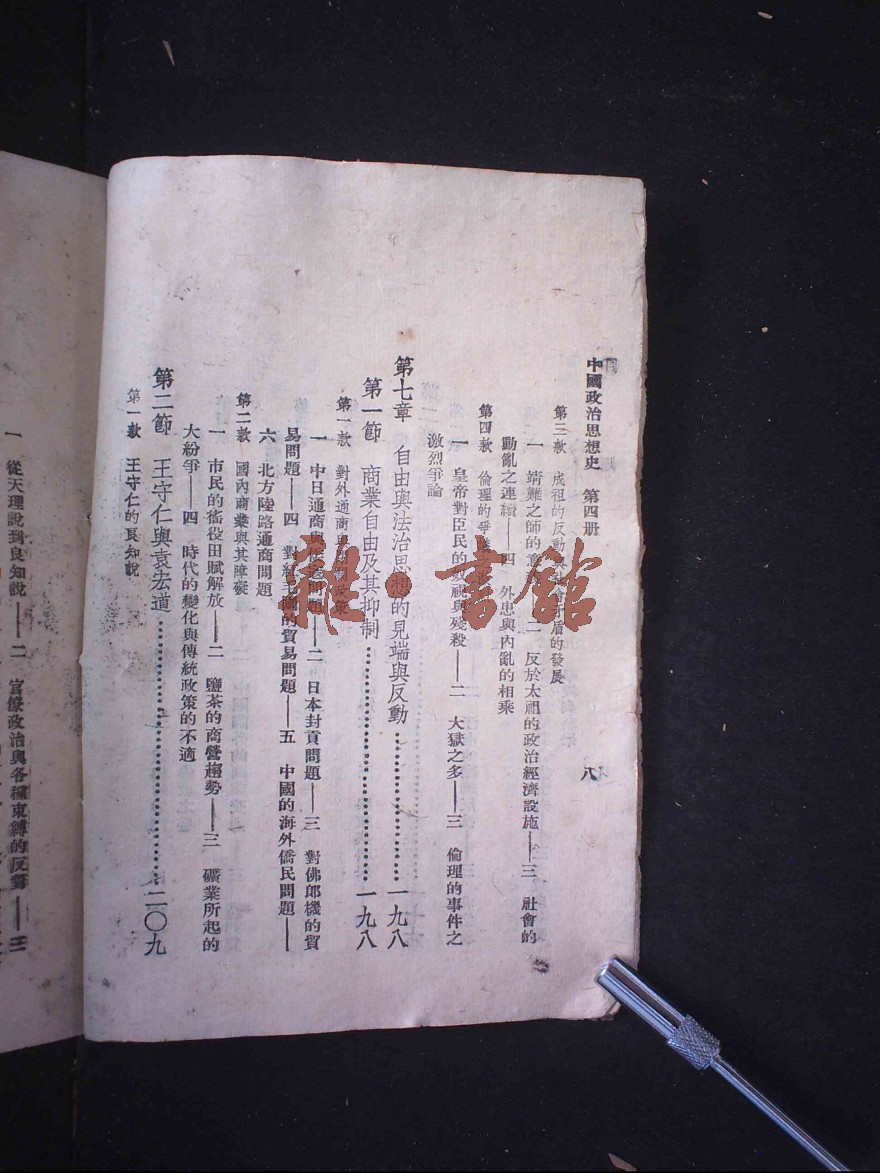 中國政治思想史　第四册
八
第三款　成祖的反動與矛盾的發展
一　靖難之師的意　二　反於太祖的政治經濟設施——三　社會的
動亂之連續——四　外患與內亂的相乘
第四款　倫理的爭
一　皇帝對臣民的視與殘殺——二　大獄之多——三　倫理的事件之
激烈爭論
第七章　自由與法治思想的見端與反動…………一九八
第一節　商業自由及其抑制…………一九八
第一款　對外通商與政策
一　中日通商與倭寇問題——二　日本封貢問題——三　對佛郎機的貿
易問題——四　對紅毛國的貿易問題——五　中國的海外僑民問題——
六　北方陸路通商問題
第二款　國內商業與其障礙
一　市民的徭役田賦解放——二　鹽茶的商營趨勢——三　礦業所起的
大紛爭——四　時代的變化與傳統政策的不適
第二節　王守仁與袁宏道…………二〇九
第一款　王守仁的良知說
一　從天理說到良知說——二　官僚政治與各種束縛的反響——三
雜·書館